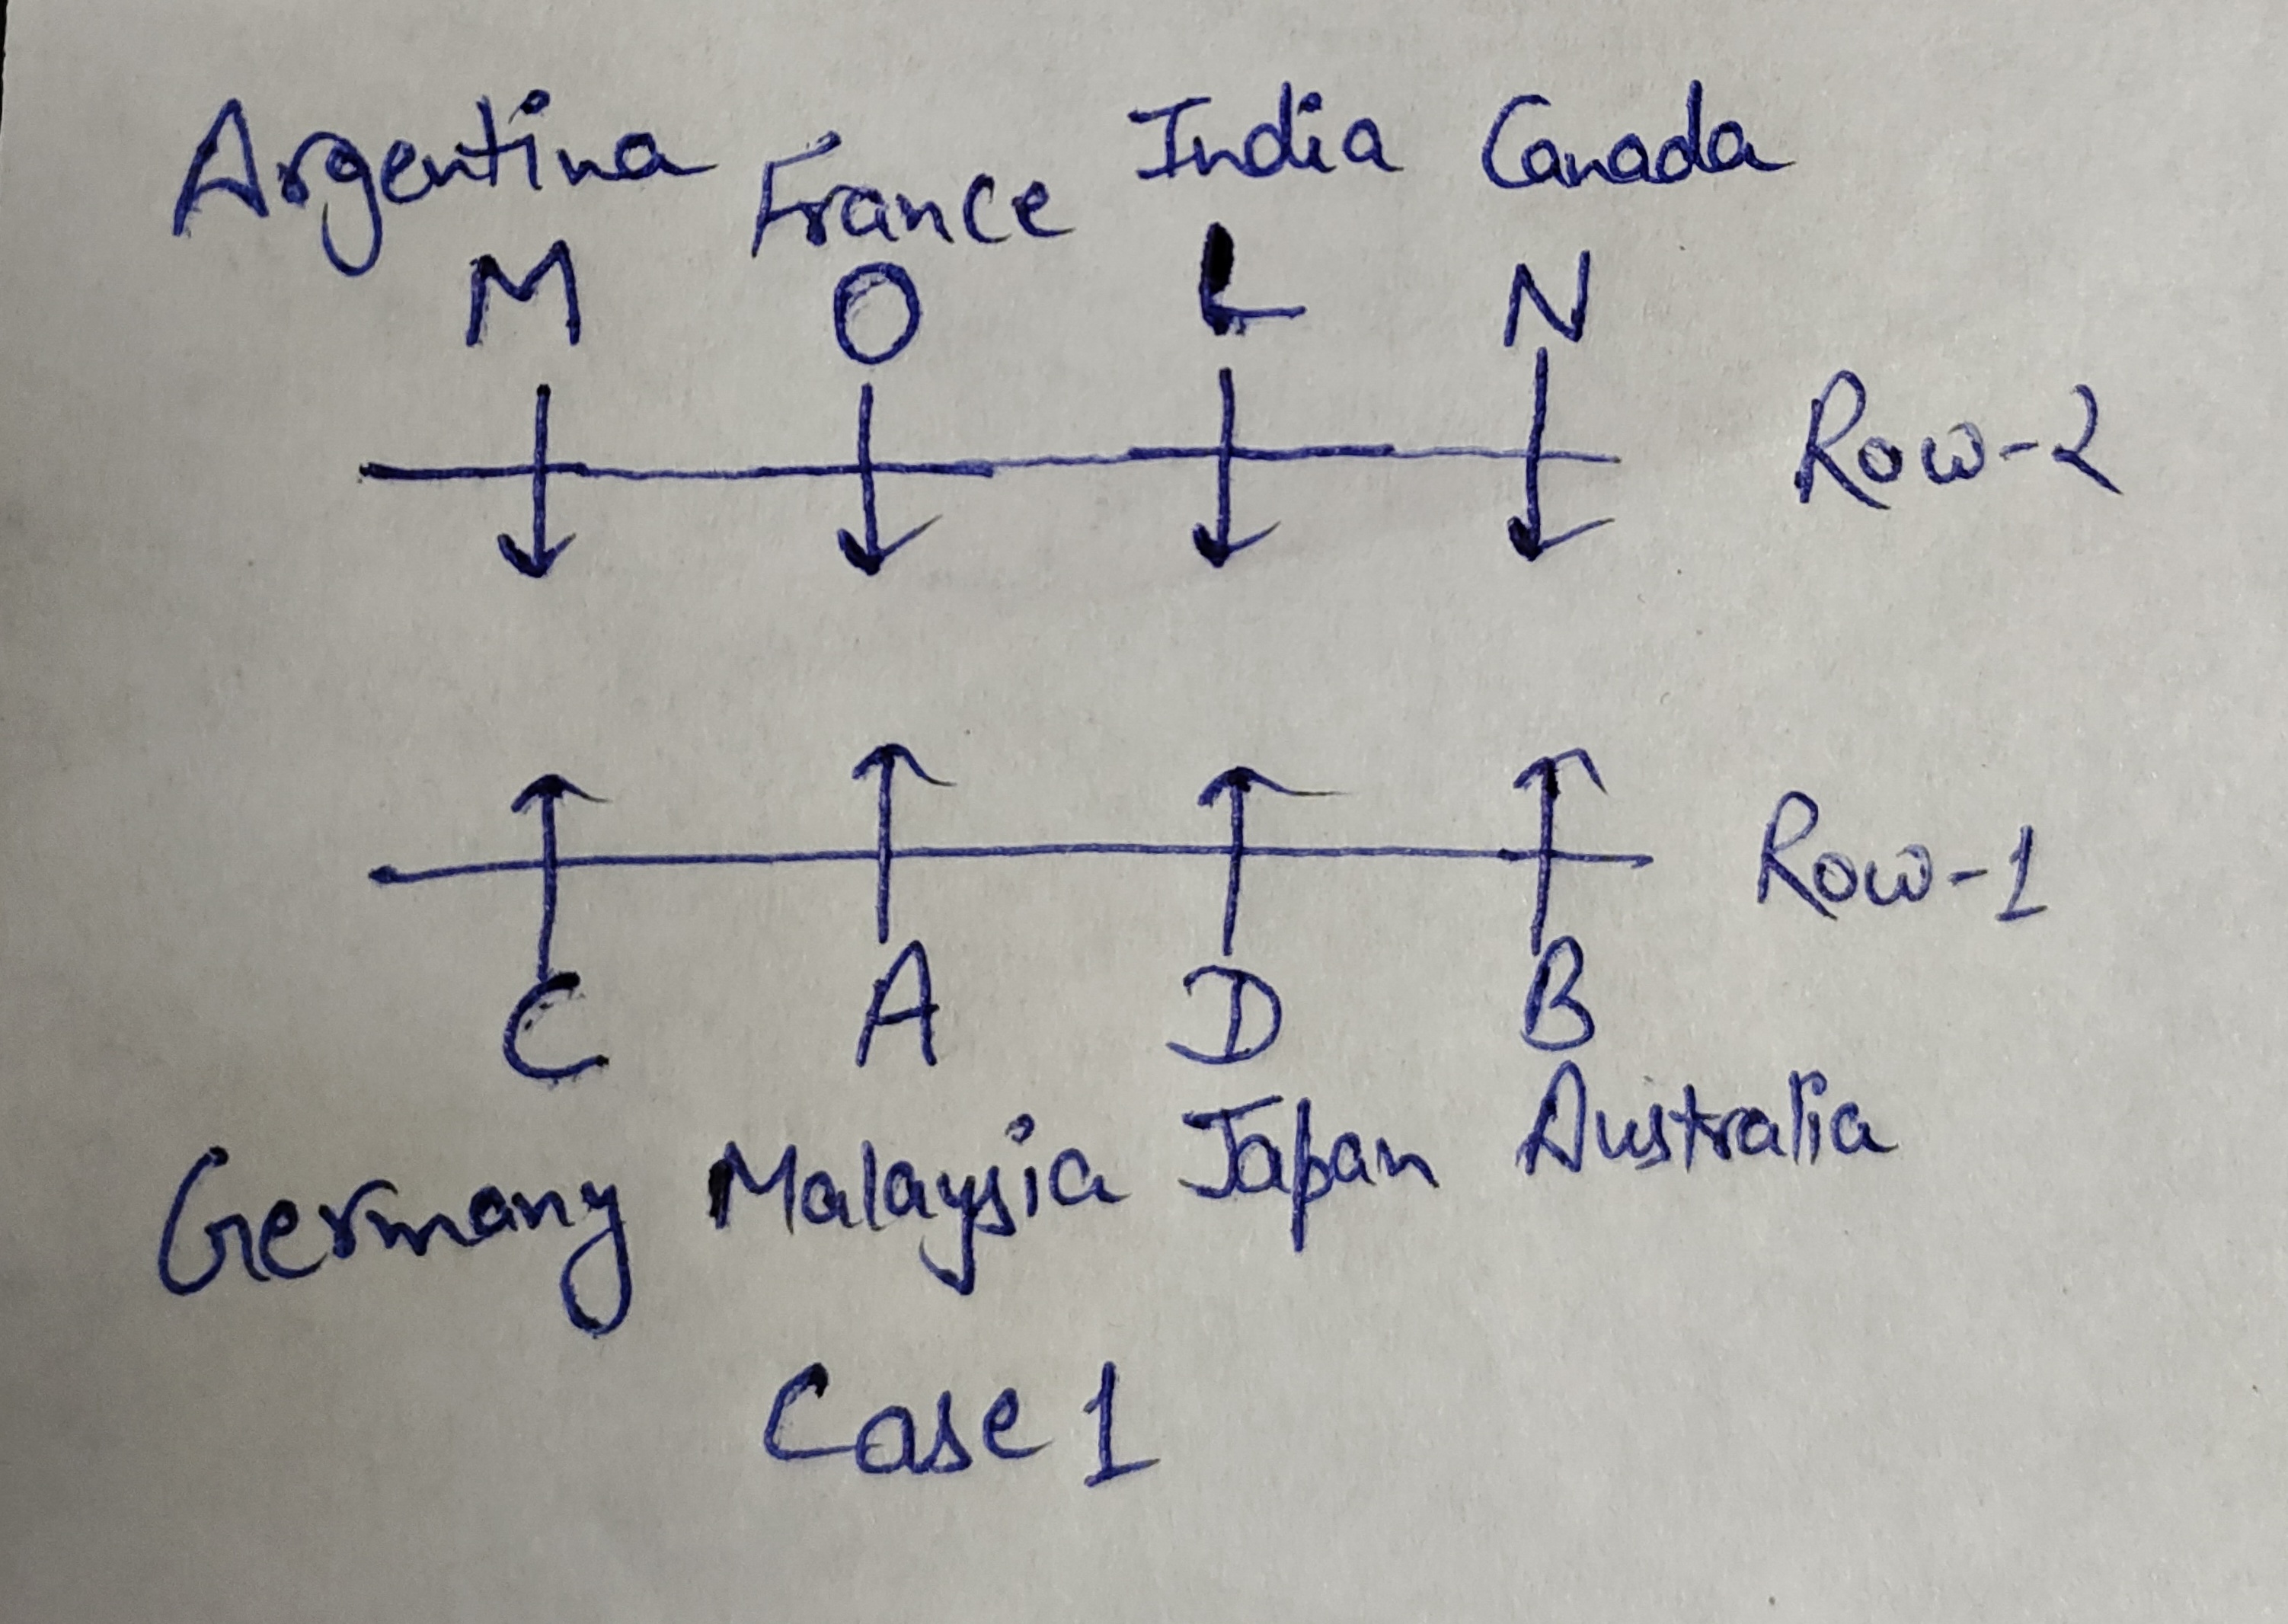 Argentina France India Canada
M O L N
Row-2
Row-1
C A D B
Germany Malaysia Japan Australia
Case 1